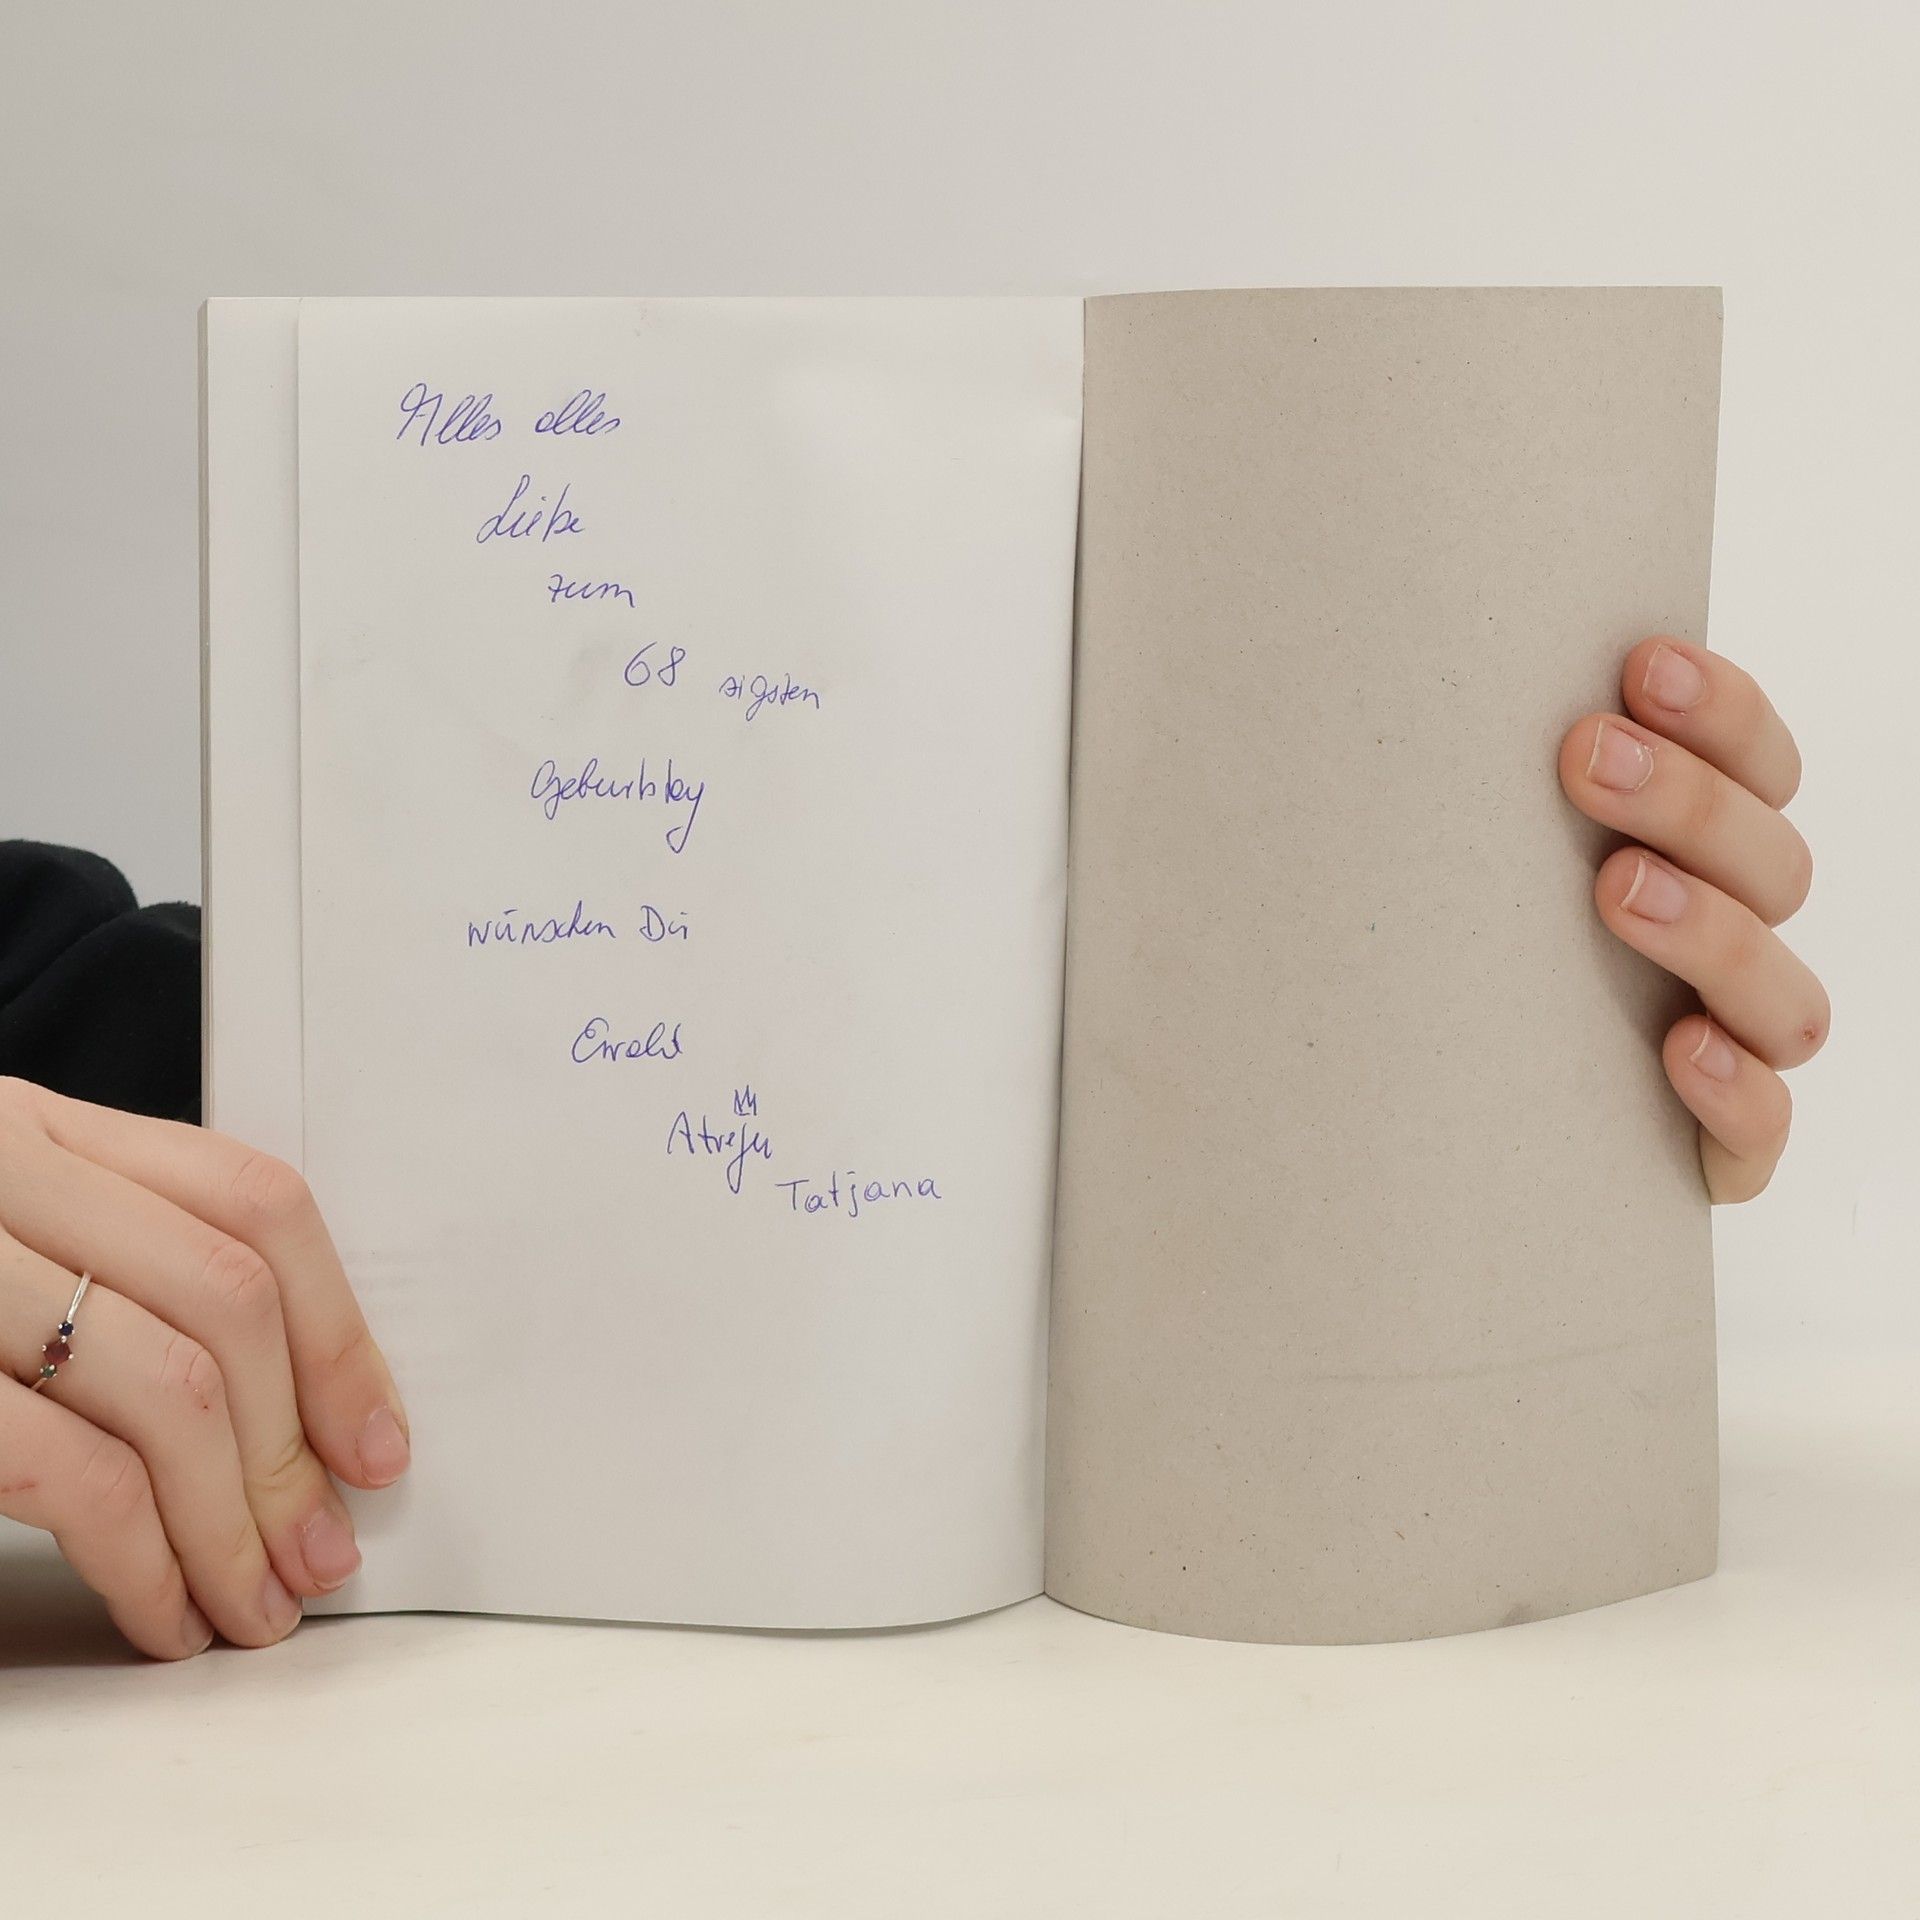 Alles alles
Liebe
zum
68 zigsten
Geburtstag
wünschen Dir
Ewald
Atreju
Tatjana